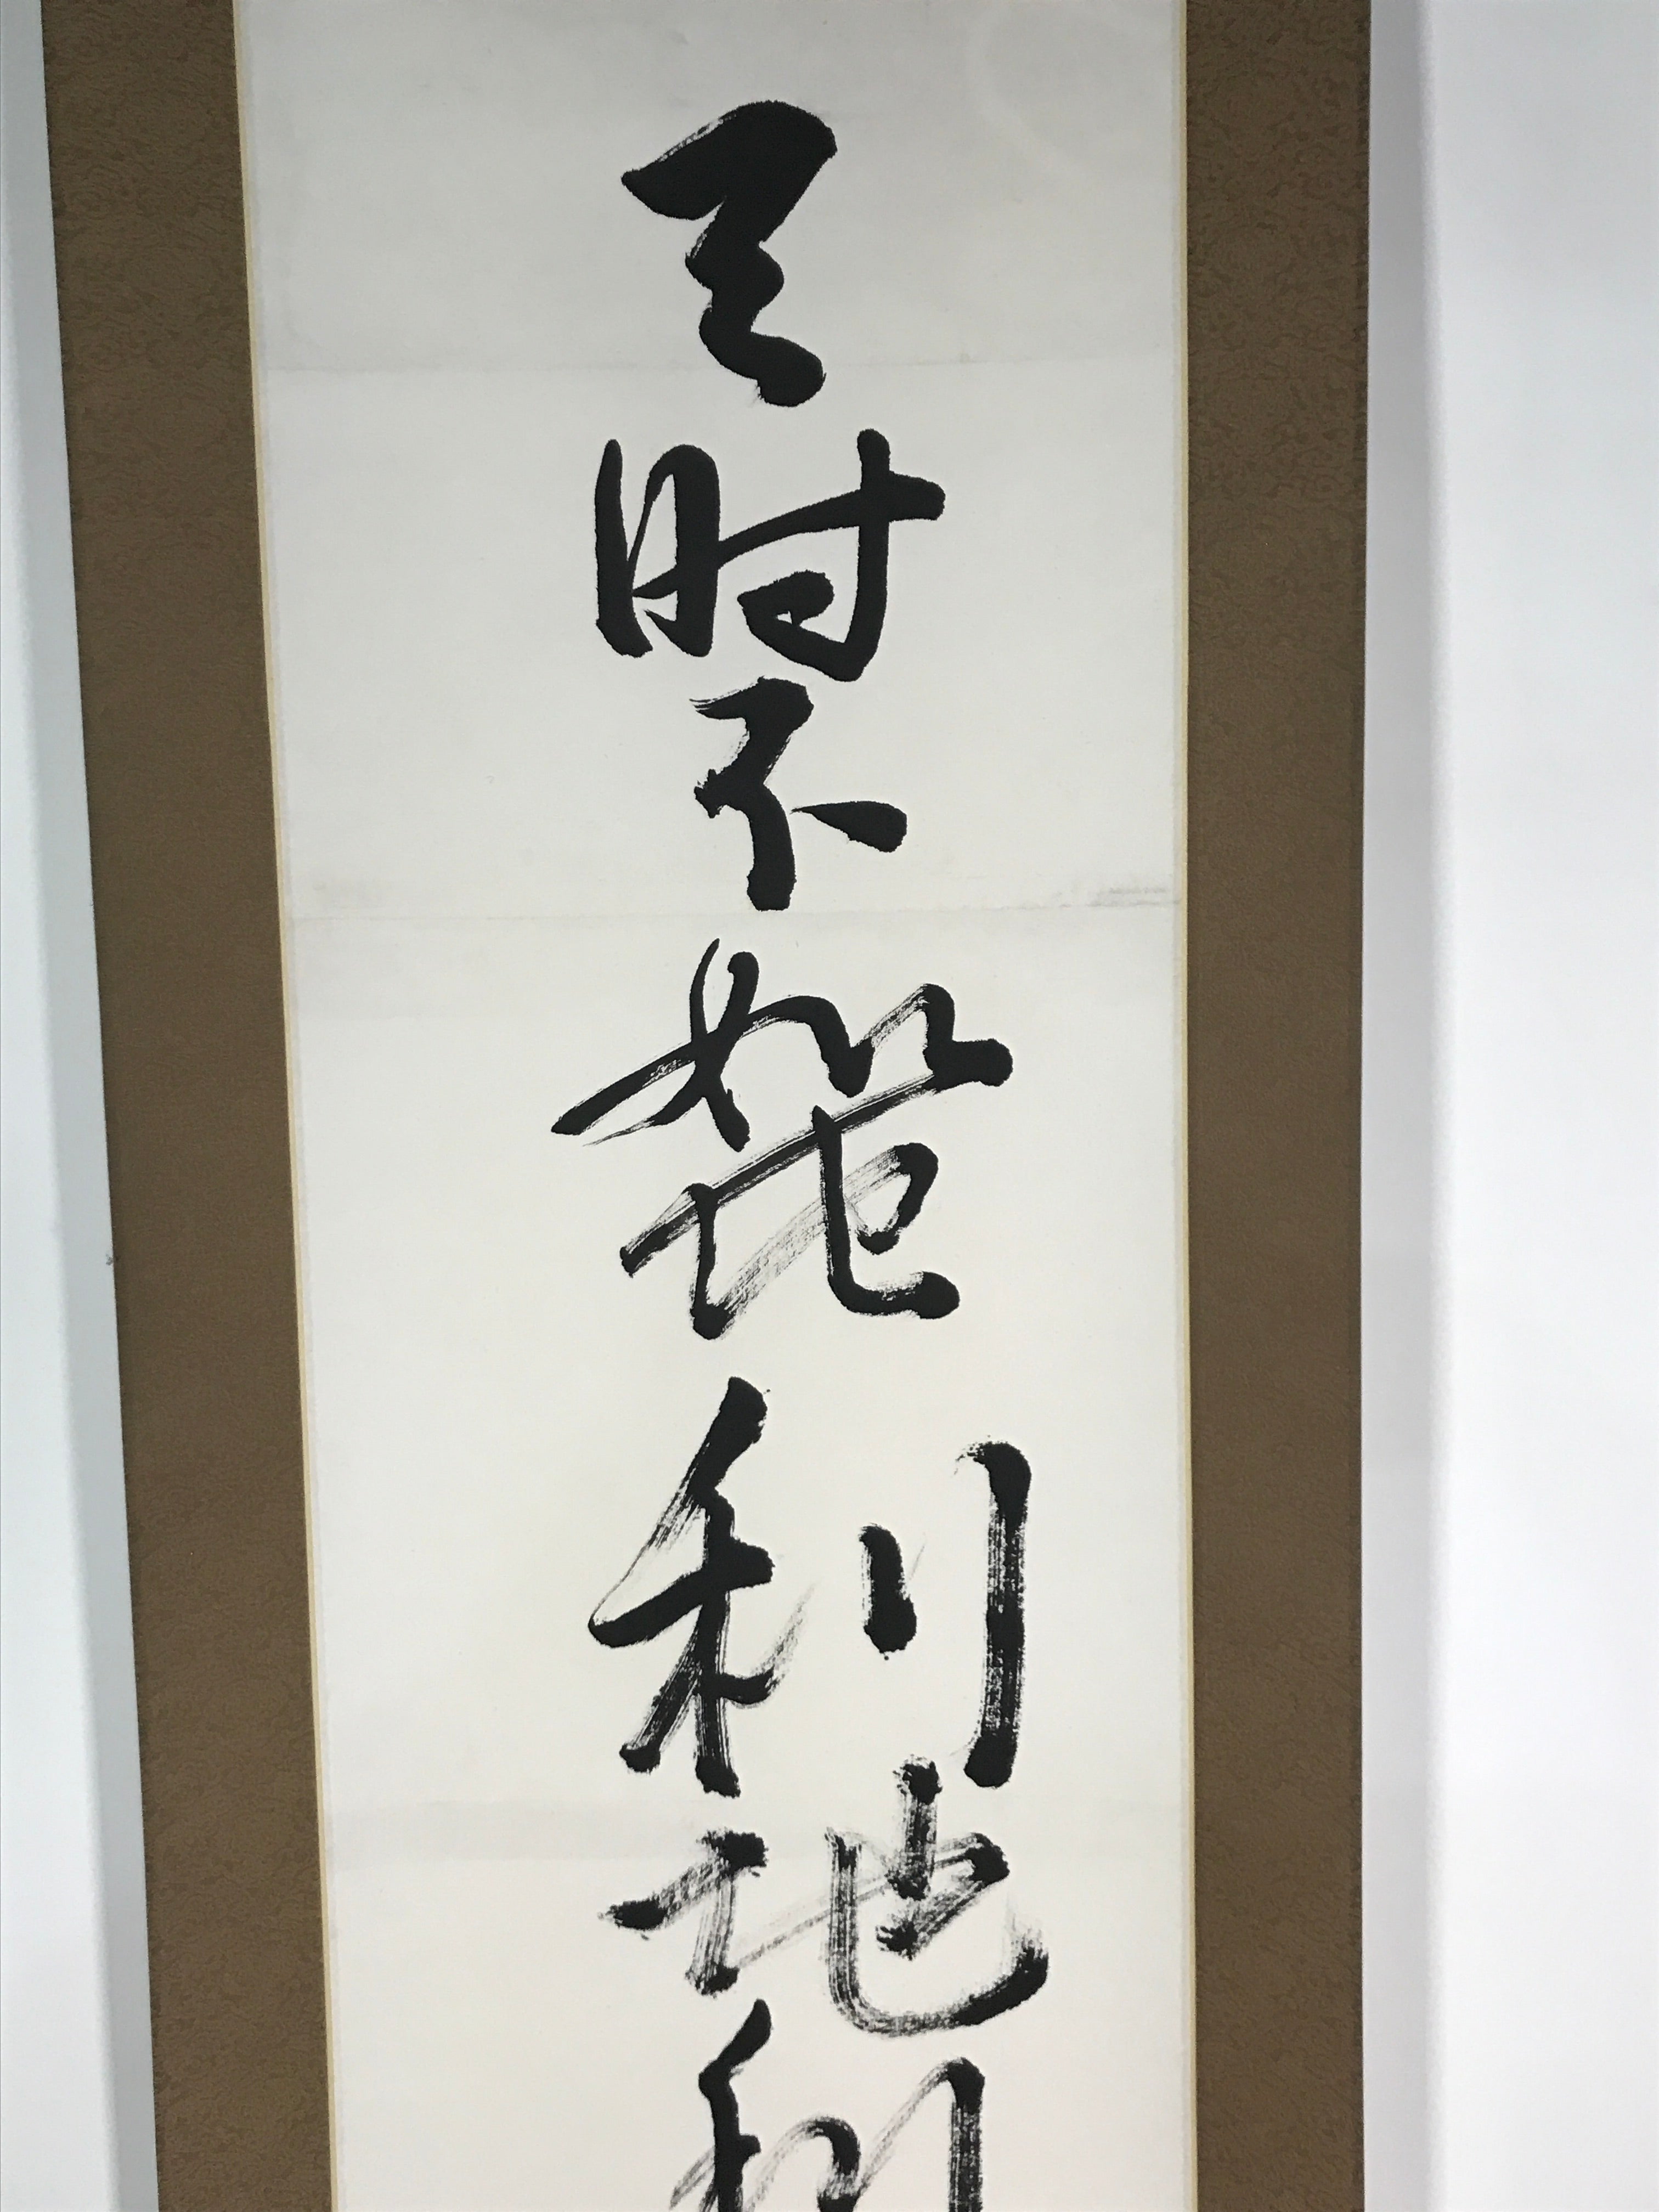 天时不如地利地利